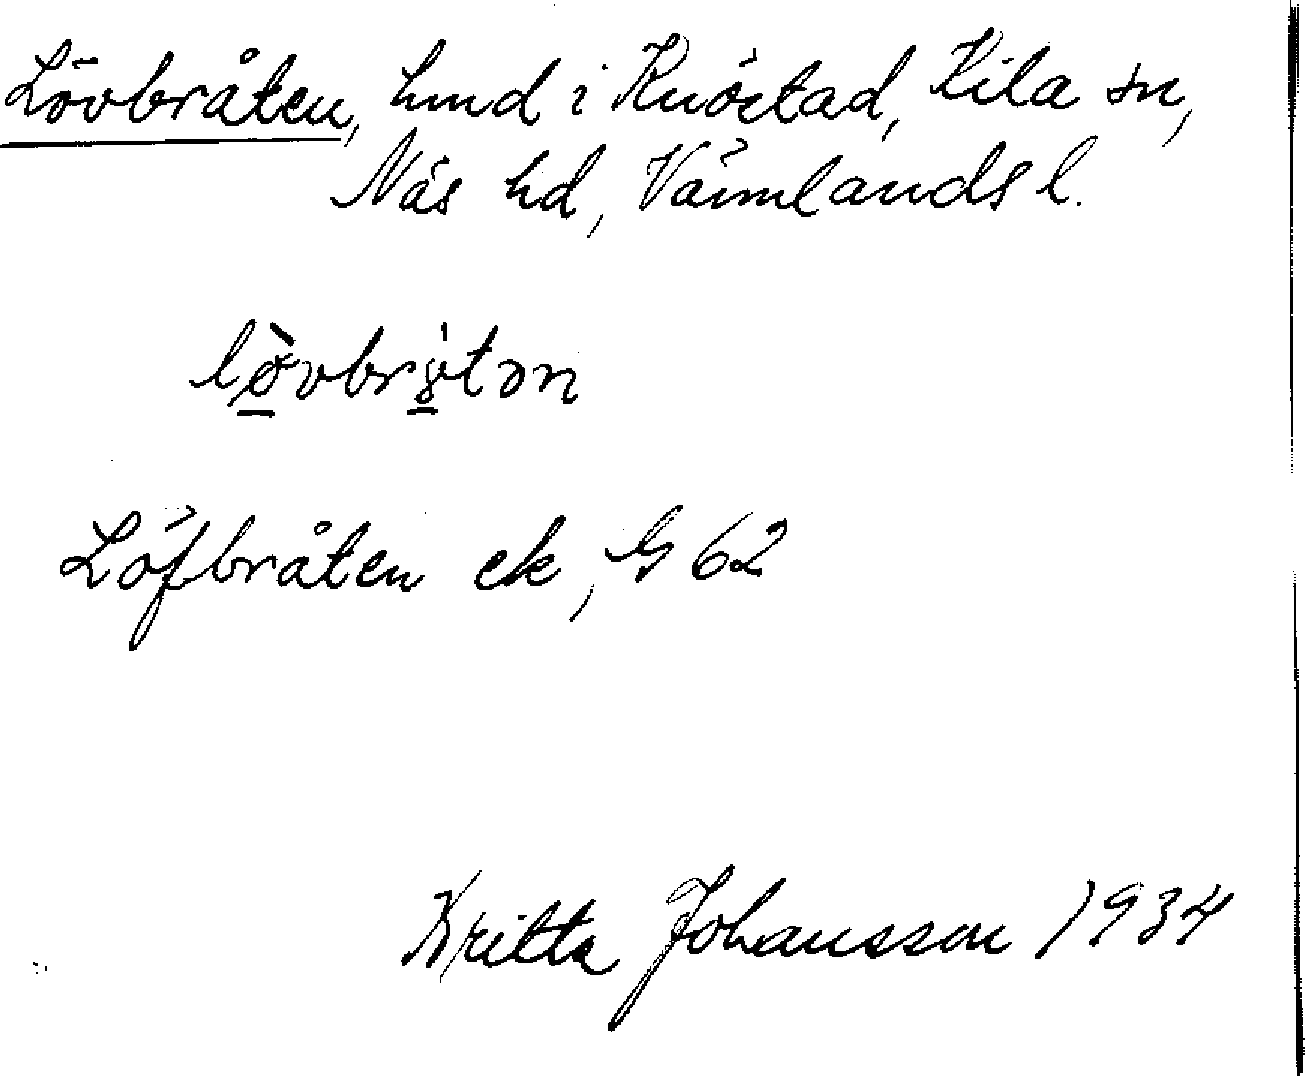 Lövbråten, hmd i Knöstad, Kila sn,
Näs hd, Värmlands l.
lö̀vbrɤ̍tən
Löfbråten ek, G 62
Kritta Johansson 1934